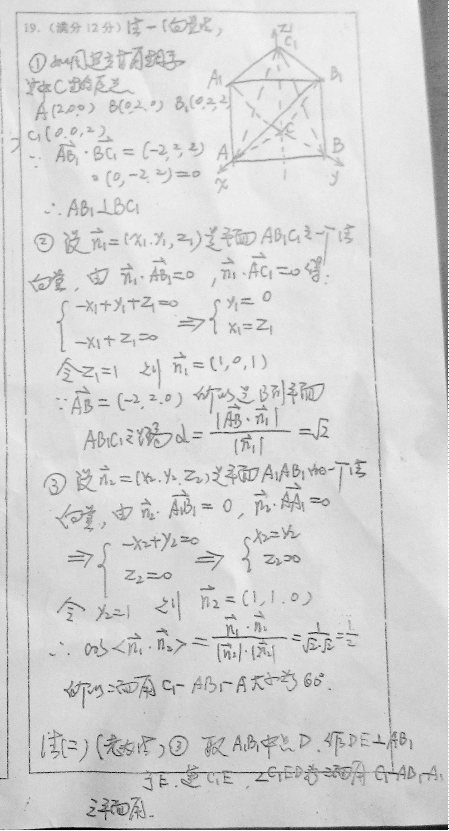 19.(满分12分)法一(向量法)
①如图建立空间直角坐标系
其中C为原点
A(2,0,0) B(0,2,0) B₁(0,2,2)
C₁(0,0,2)
∵ AB₁·BC₁=(-2,2,2)
·(0,-2,2)=0
∴ AB₁⊥BC₁
②设n₁=(x₁,y₁,z₁)是平面AB₁C₁之一个法
向量,由 n₁·AB₁=0,n₁·AC₁=0得:
{-x₁+y₁+z₁=0 ⇒ {y₁=0
-x₁+z₁=0 x₁=z₁
令z₁=1 则 n₁=(1,0,1)
∵AB=(-2,2,0) 所以点B到平面
AB₁C₁之距离d=|AB·n₁|/|n₁|=√2
③设n₂=(x₂,y₂,z₂)是平面A₁AB₁的一个法
向量,由n₂·A₁B₁=0,n₂·AA₁=0
⇒{-x₂+y₂=0 ⇒ {x₂=y₂
z₂=0 z₂=0
令y₂=1 则 n₂=(1,1,0)
∴ cos<n₁·n₂>=n₁·n₂/|n₁|·|n₂|=1/√2·√2=1/2
所以二面角C₁-AB₁-A₁大小为60°.
法(二)(几何法)③ 取A₁B₁中点D,作DE⊥AB₁
于E,连C₁E,∠C₁ED为二面角C₁-AB₁-A₁
之平面角.
z
C₁
A₁
B₁
C
A
B
x
y